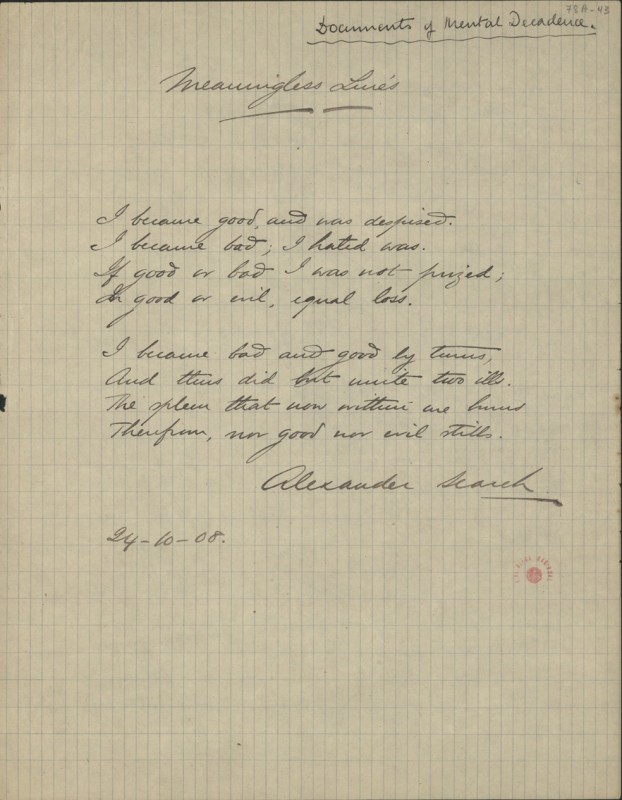 78A-43
Documents of Mental Decadence.
Meaningless Lines
I became good, and was despised.
I became bad; I hated was.
If good or bad I was not prized;
In good or evil, equal loss.
I became bad and good by turns,
And thus did but unite two ills.
The spleen that now within me burns
Therefrom, nor good nor evil stills.
Alexander Search.
24-10-08.